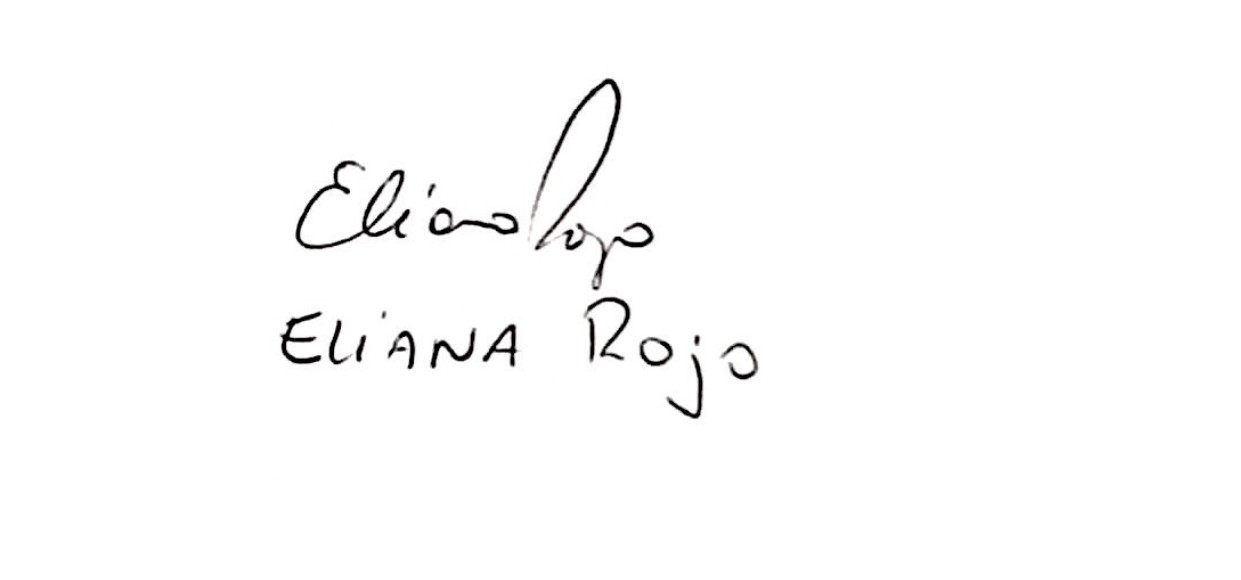 Eliana Rojo
ELiANA Rojo